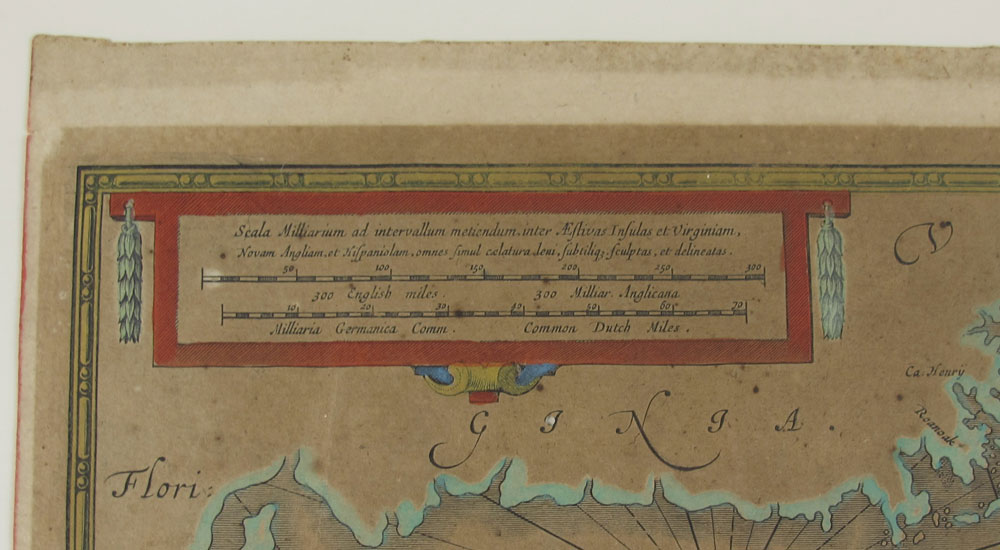 Scala Milliarium ad intervallum metiendum inter Æstivas Insulas et Virginiam,
Novam Angliam, et Hispaniolam, omnes simul cælatura leui, subtiliq; sculptas, et delineatas.
50 100 150 200 250 300
300 English miles. 300 Milliar. Anglicana
10 20 30 40 50 60 70
Milliaria Germanica Comm. Common Dutch Miles.
V
Ca. Henrÿ
Roanoak
GINIA.
Flori: